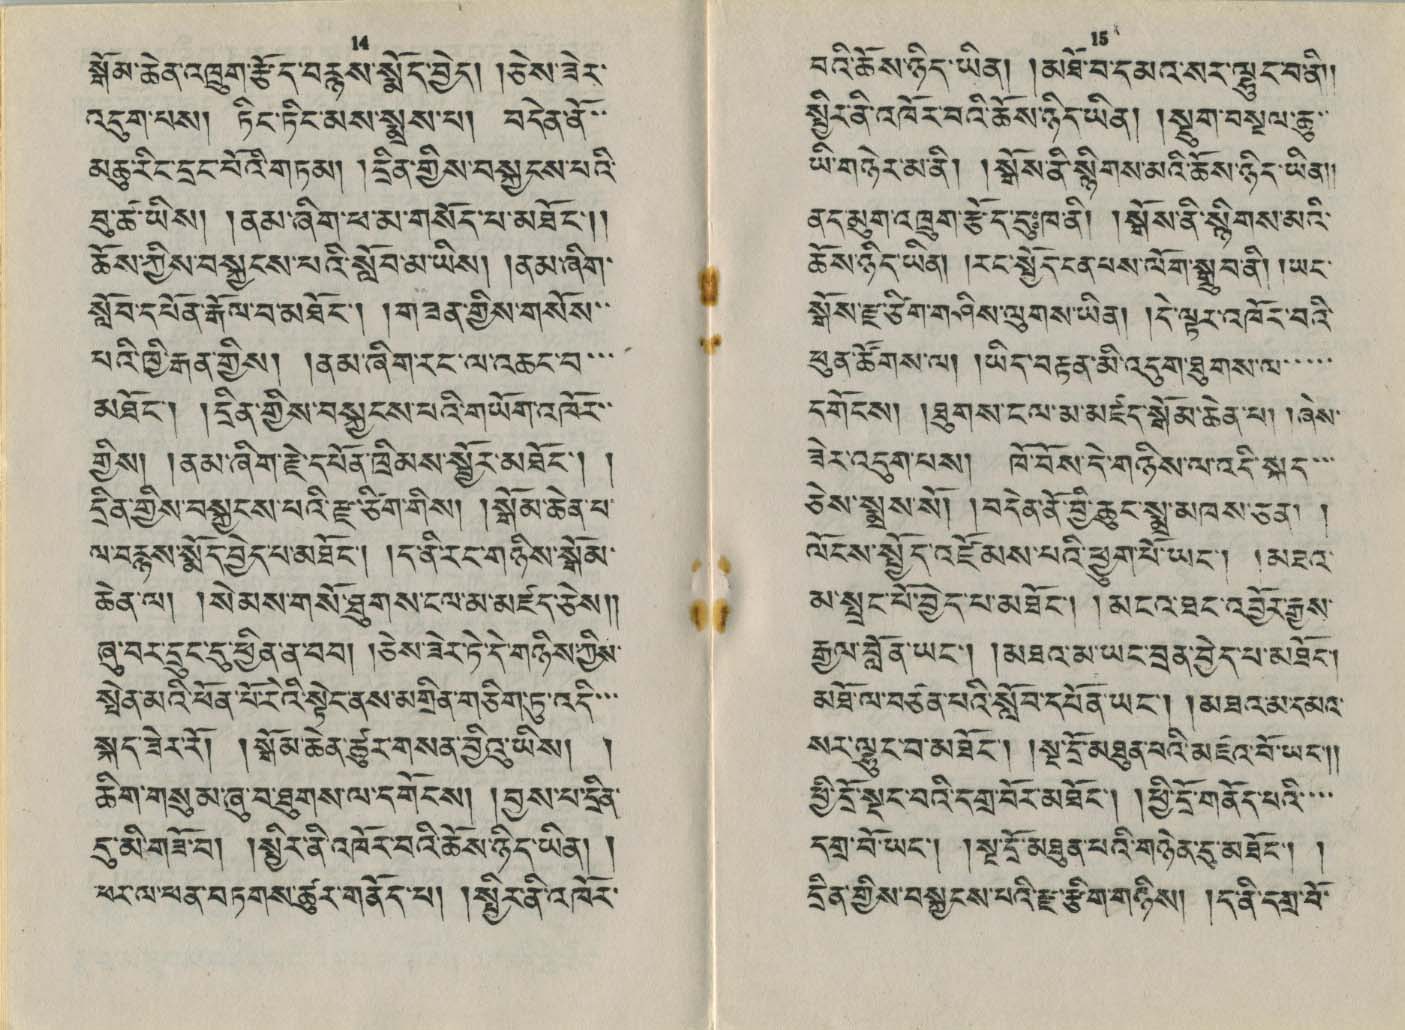 14
སྒོམ་ཆེན་འཁྲུག་རྩོད་བརྙས་སྨོད་བྱེད། །ཅེས་ཟེར་
འདུག་པས། ཏིང་ཏིང་མས་སྨྲས་པ། བདེན་ནོ་་
མཆུ་རིང་དྲང་པོའི་གཏམ། །དྲིན་གྱིས་བསྐྱངས་པའི་
བུ་ཚ་ཡིས། །ནམ་ཞིག་ཕ་མ་གསོད་པ་མཐོང་།།
ཆོས་ཀྱིས་བསྐྱངས་པའི་སློབ་མ་ཡིས། །ནམ་ཞིག་
སློབ་དཔོན་རྒོལ་བ་མཐོང་། །གཟན་གྱིས་གསོས་་
པའི་ཁྱི་རྒན་གྱིས། །ནམ་ཞིག་རང་ལ་འཆང་བ་་་
མཐོང་། །དྲིན་གྱིས་བསྐྱངས་པའི་གཡོག་འཁོར་་
གྱིས། །ནམ་ཞིག་རྗེ་དཔོན་ཁྲིམས་སྦྱོར་མཐོང་། །
དྲིན་གྱིས་བསྐྱངས་པའི་རྫ་ཙིག་གིས། །སྒོམ་ཆེན་པ་
ལ་བརྙས་སྨོད་བྱེད་པ་མཐོང་། །ད་ནི་རང་གཉིས་སྒོམ་
ཆེན་ལ། །སེམས་གསོ་ཐུགས་ངལ་མ་མཛད་ཅེས།།
ཞུ་བར་དྲུང་དུ་ཕྱིན་ན་བབ། །ཅེས་ཟེར་ཏེ་དེ་གཉིས་ཀྱིས་
སྤེན་མའི་ཕོན་པོརེའི་སྟེང་ནས་མགྲིན་གཅིག་ཏུ་འདི་་་
སྐད་ཟེར་རོ། །སྒོམ་ཆེན་ཚུར་གསན་བྱིའུ་ཡིས། །
ཆིག་གསུམ་ཞུ་བ་ཐུགས་ལ་དགོངས། །བྱས་པ་དྲིན་
དུ་མི་གཟོ་བ། །སྤྱིར་ནི་འཁོར་བའི་ཆོས་ཉིད་ཡིན། །
ཕར་ལ་ཕན་བཏགས་ཚུར་གནོད་པ། །སྤྱིར་ནི་འཁོར་
15
བའི་ཆོས་ཉིད་ཡིན། །མཐོ་བ་དམའ་སར་ལྷུང་བ་ནི།།
སྤྱིར་ནི་འཁོར་བའི་ཆོས་ཉིད་ཡིན། །སྡུག་བསྔལ་ཆུ་་
ཡི་གཉེར་མ་ནི། །སྒོས་ནི་སྙིགས་མའི་ཆོས་ཉིད་ཡིན།།
ནད་མུག་འཁྲུག་རྩོད་དུཿཁ་ནི། །སྒོས་ནི་སྙིགས་མའི་
ཆོས་ཉིད་ཡིན། །རང་སྤྱོད་ངནཔས་ལོག་སྒྲུབ་ནི། །ཡང་
སྒོས་རྫ་ཙིག་གཤིས་ལུགས་ཡིན། །དེ་ལྟར་འཁོར་བའི་
ཕུན་ཚོགས་ལ། །ཡིད་བརྟན་མི་འདུག་ཐུགས་ལ་་་་་
དགོངས། །ཐུགས་ངལ་མ་མཛད་སྒོམ་ཆེན་པ། །ཞེས་
ཟེར་འདུག་པས། ཁོ་བོས་དེ་གཉིས་ལ་འདི་སྐད་་་
ཅེས་སྨྲས་སོ། །བདེན་ནོ་བྱི་ཆུང་སྨྲ་མཁས་ཅན། །
ལོངས་སྤྱོད་འཛོམས་པའི་ཕྱུག་པོ་ཡང་། །མཇའ་
མ་སྤྲང་པོ་བྱེད་པ་མཐོང་། །མངའ་ཐང་འབྱོར་རྒྱས་
རྒྱལ་བློན་ཡང་། །མཐའ་མ་ཡང་བྲན་བྱེད་པ་མཐོང་།
མཐོ་ལ་བཙན་པའི་སློབ་དཔོན་ཡང་། །མཐའ་མ་དམའ་
སར་ལྷུང་བ་མཐོང་། །སྔ་དྲོ་མཐུན་པའི་མཛའ་བོ་ཡང་།།
ཕྱི་དྲོ་སྡང་བའི་དགྲ་བོར་མཐོང་། །ཕྱི་དྲོ་གནོད་པའི་་་
དགྲ་བོ་ཡང་། །སྔ་དྲོ་མཐུན་པའི་གཉེན་དུ་མཐོང་། །
དྲིན་གྱིས་བསྐྱངས་པའི་རྫ་རྩིག་གཉིས། །ད་ནི་དགྲ་བོ་